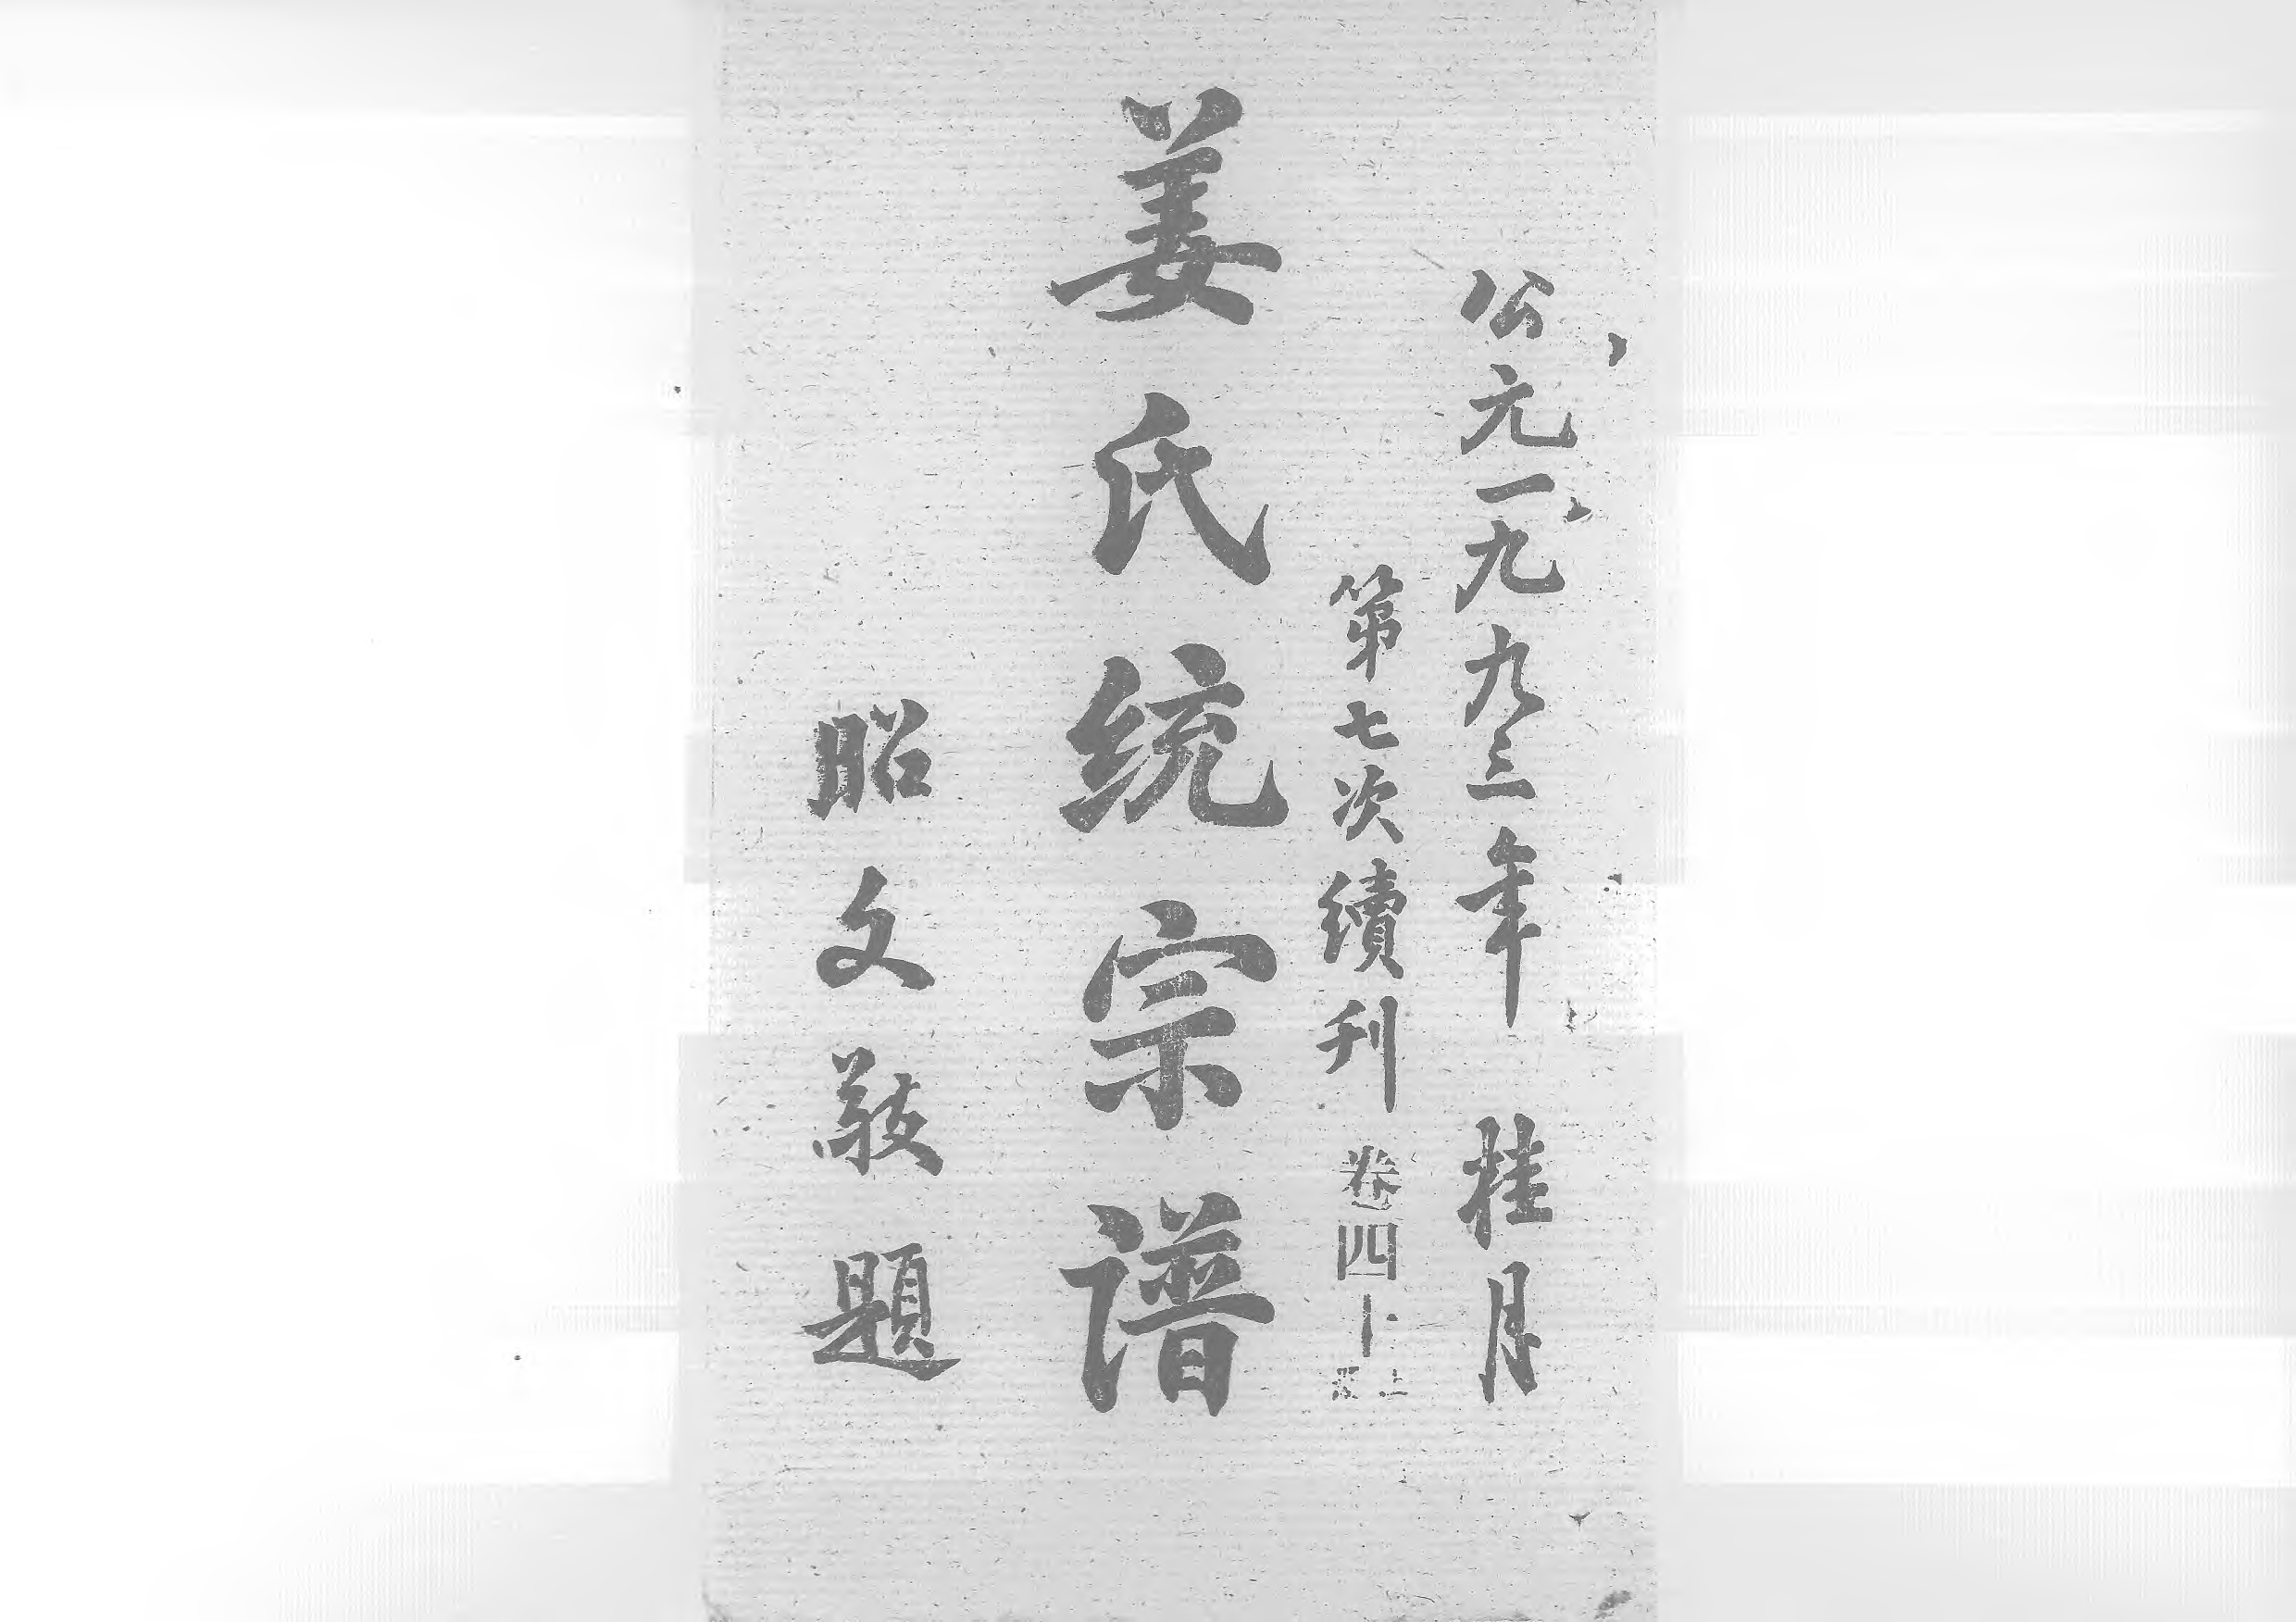 公元一九九三年 桂月
第七次續刊 卷四十
姜氏统宗谱
昭文敬題